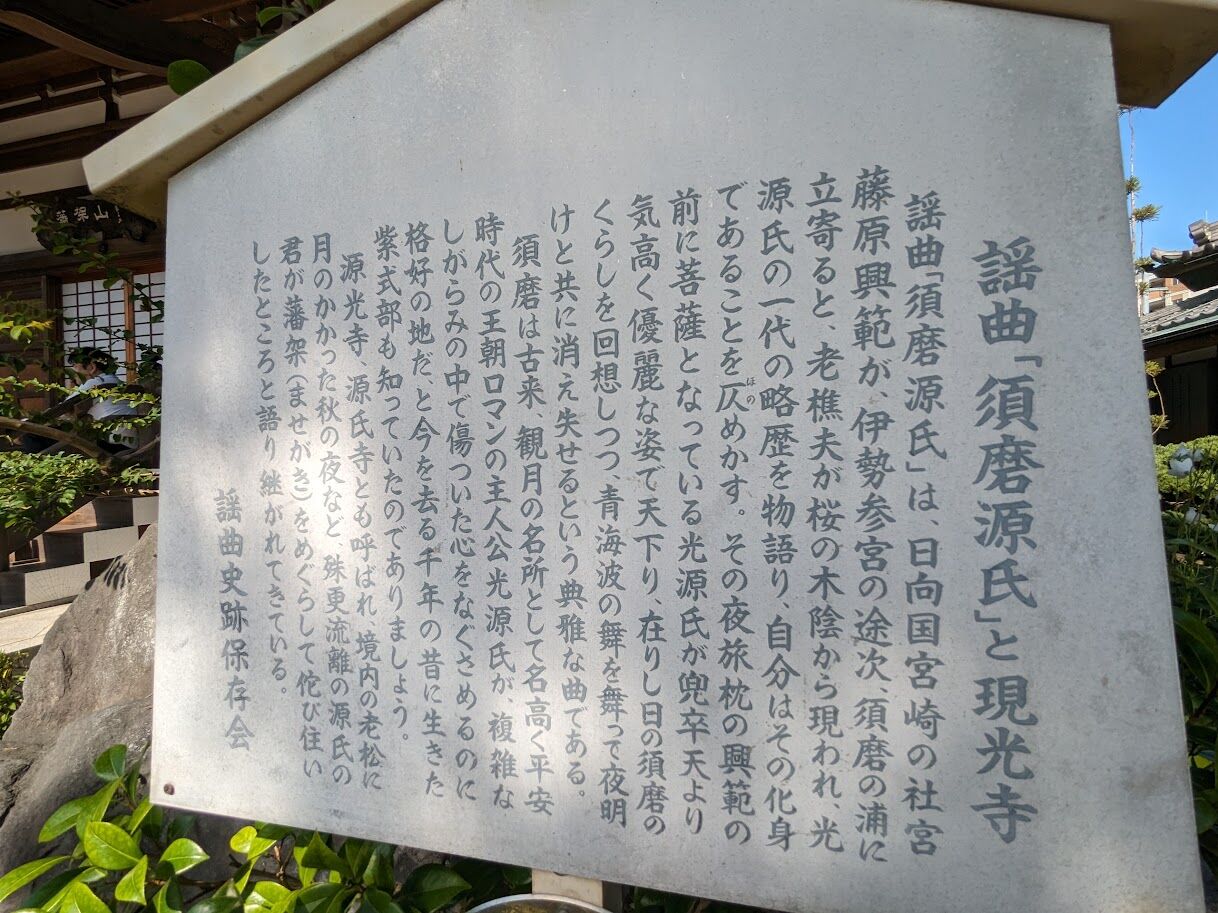 謡曲「須磨源氏」と現光寺
謡曲「須磨源氏」は、日向国宮崎の社宮
藤原興範が、伊勢参宮の途次、須磨の浦に
立寄ると、老樵夫が桜の木陰から現われ、光
源氏の一代の略歴を物語り、自分はその化身
であることを仄めかす。その夜旅枕の興範の
ほの
前に菩薩となっている光源氏が兜卒天より
気高く優麗な姿で天下り、在りし日の須磨の
くらしを回想しつつ、青海波の舞を舞って夜明
けと共に消え失せるという典雅な曲である。
須磨は古来、観月の名所として名高く平安
時代の王朝ロマンの主人公光源氏が、複雑な
しがらみの中で傷ついた心をなぐさめるのに
格好の地だ、と今を去る千年の昔に生きた
紫式部も知っていたのでありましょう。
源光寺、源氏寺とも呼ばれ、境内の老松に
月のかかった秋の夜など、殊更流離の源氏の
君が藩架(ませがき)をめぐらして侘び住い
したところと語り継がれてきている。
謡曲史跡保存会